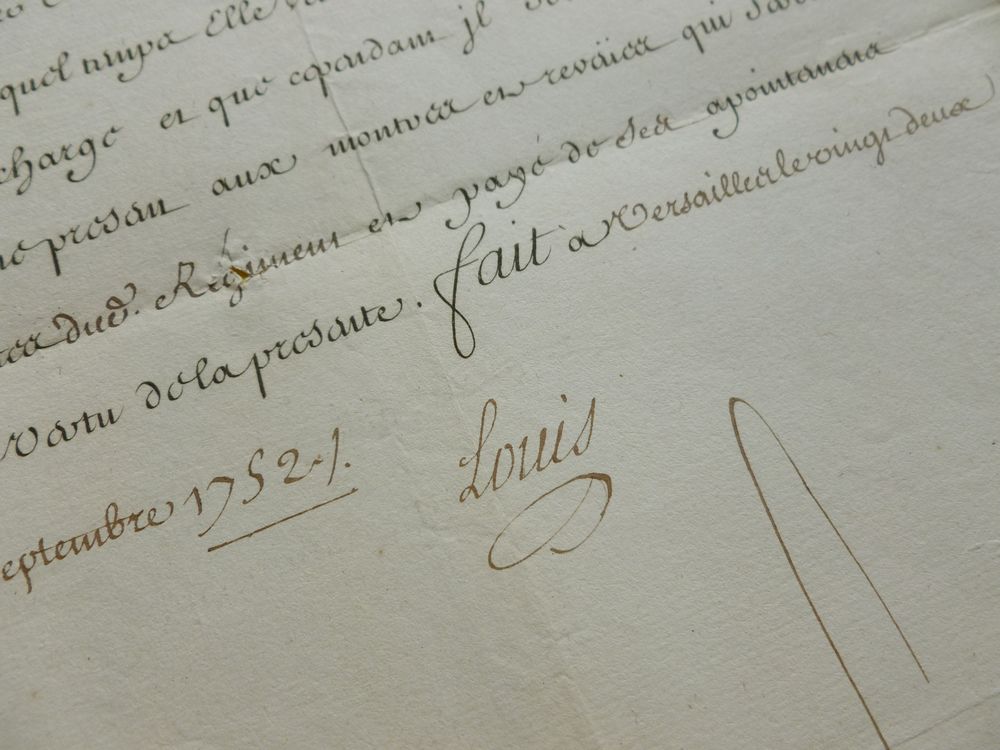 quel temps Elle
charge et que cependant jl
present aux montres et reveües qui
dud. Regiment et payé de ses apointemens
vertu de la presente. fait à Versailles le vingt deux
septembre 1752 ./.
Louis